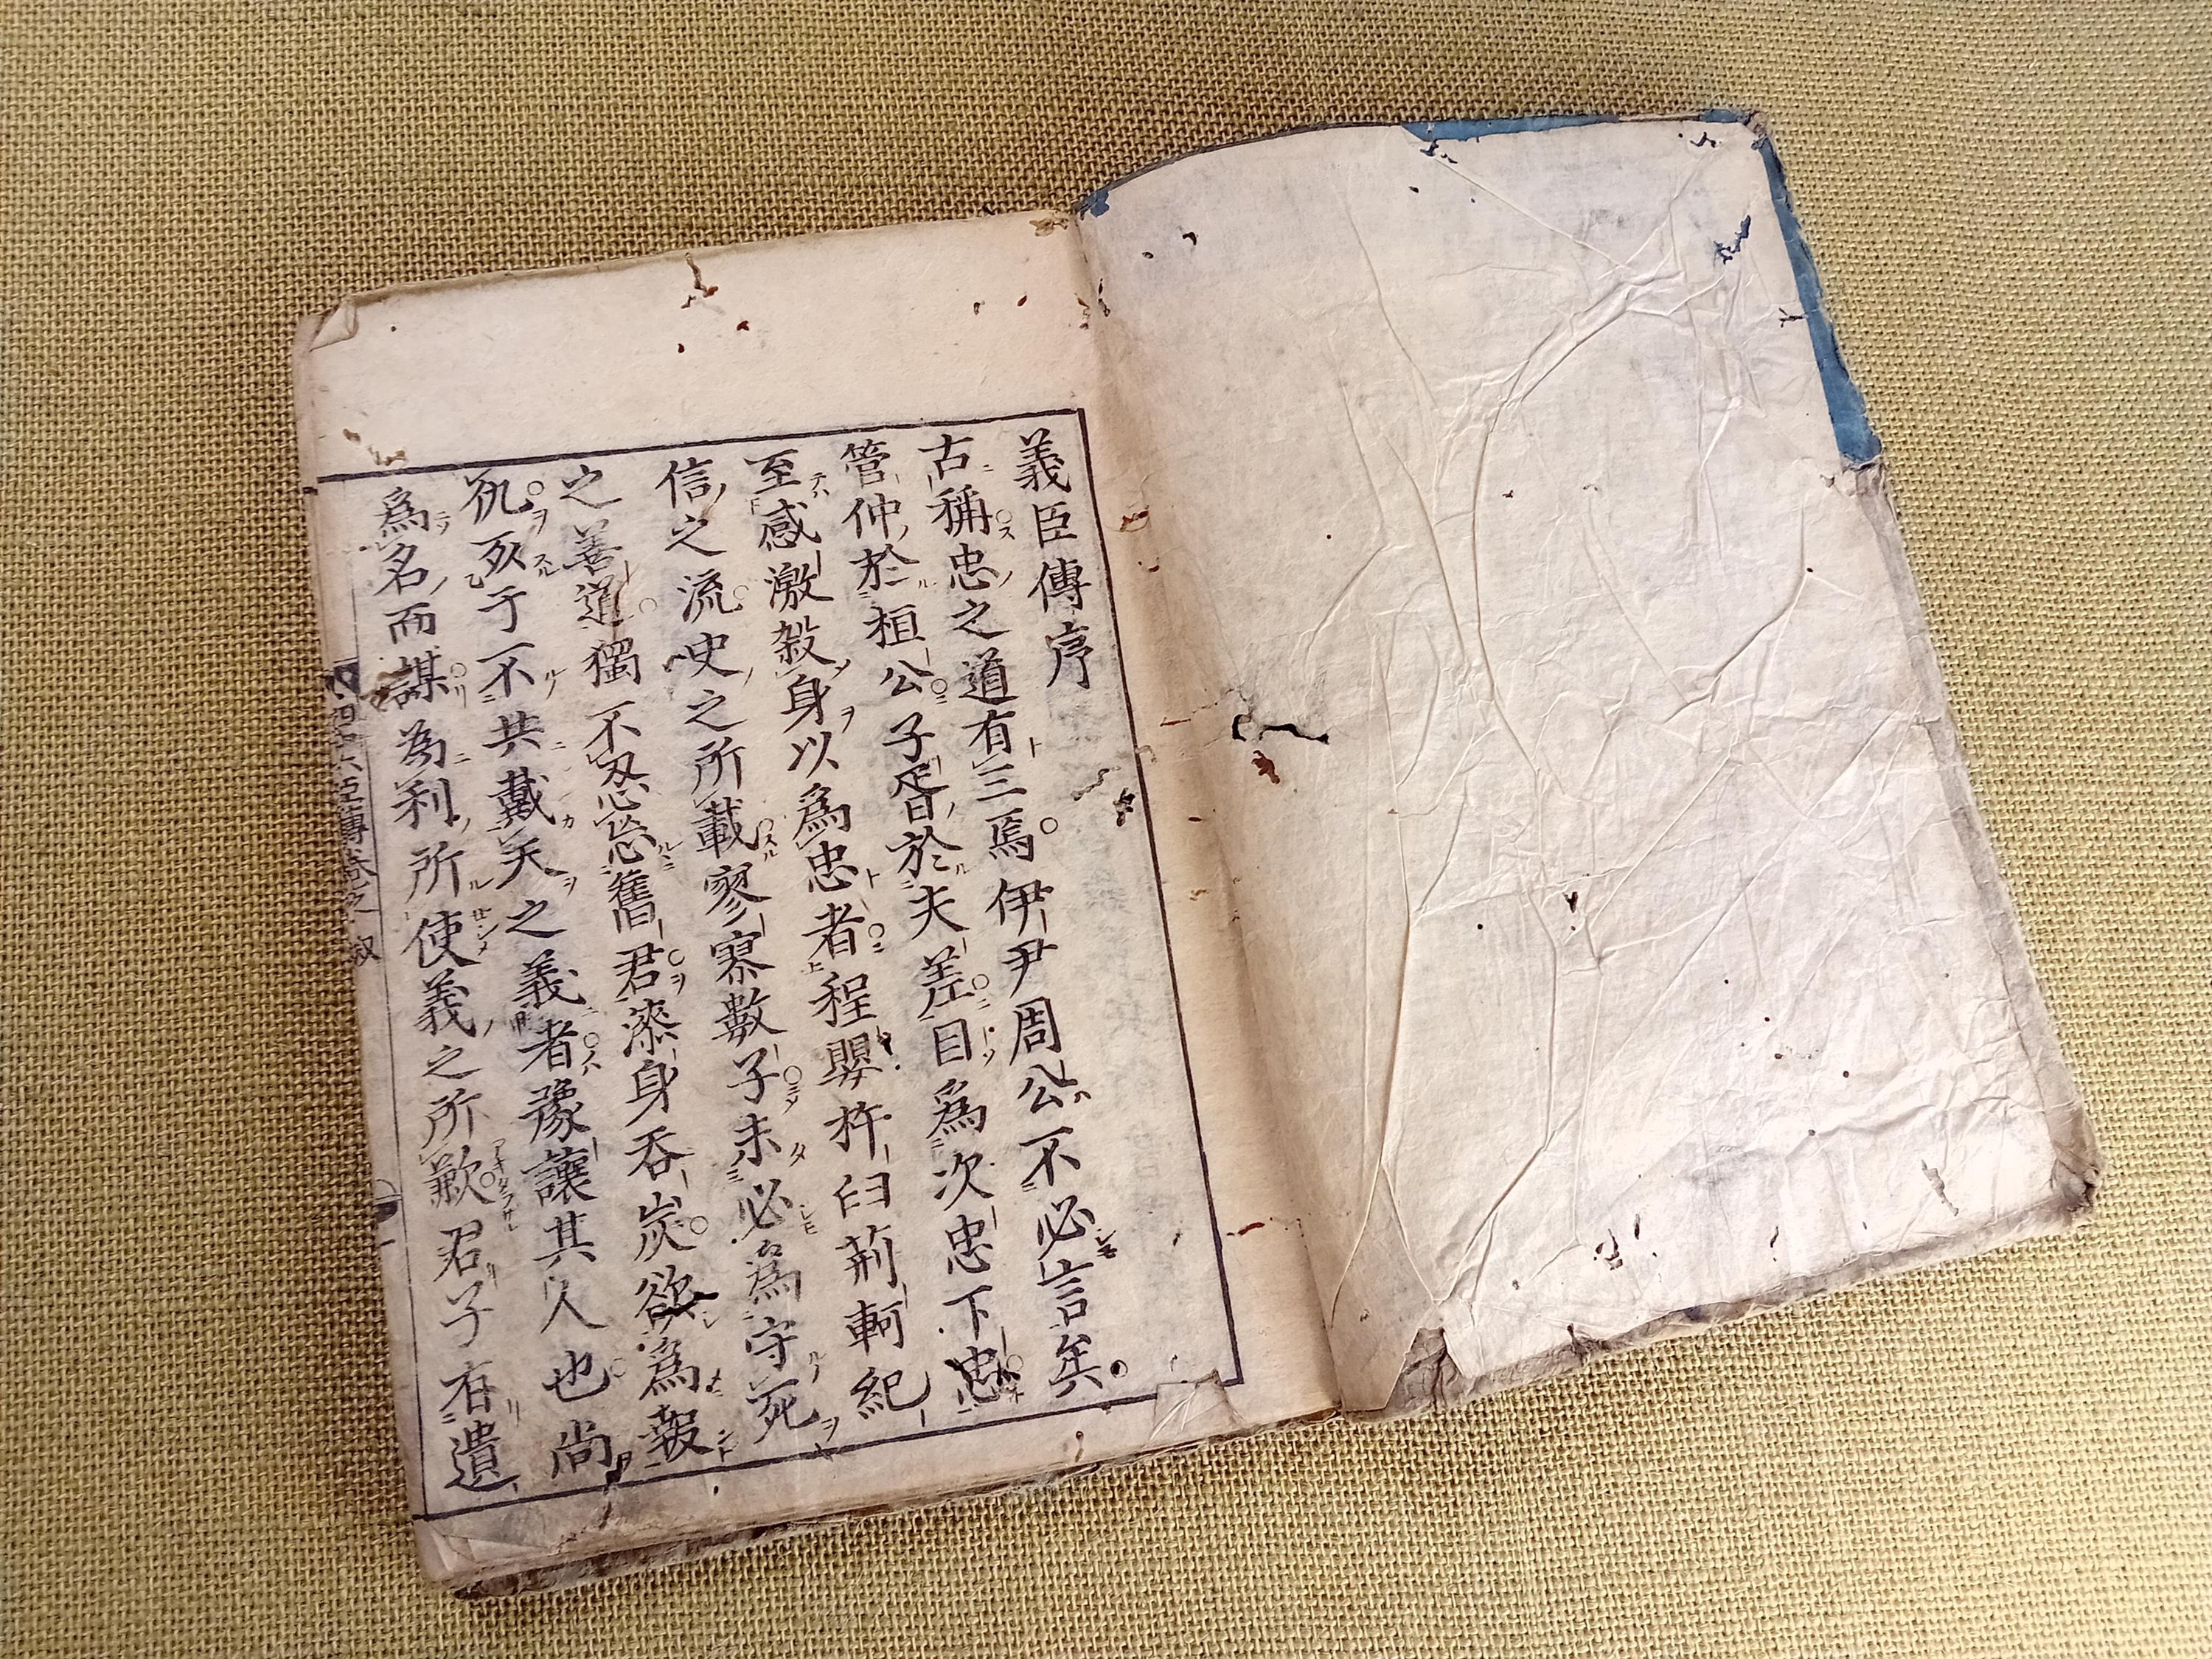 義臣傳序
古稱忠之道有三焉伊尹周公不必言矣
管仲於桓公子胥於夫差目為次忠下忠
至感激殺身以為忠者程嬰杵臼荊軻紀
信之流史之所載寥寥數子未必為守死
之善道獨不忍忘舊君漆身吞炭欲為報
仇死于不共戴天之義者豫讓其人也尚
為名而謀為利所使義之所歉君子有遺